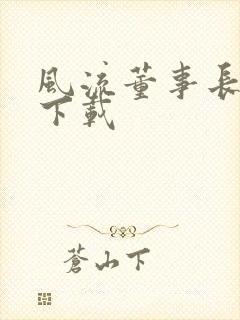 風流董事長
下載
蒼山下